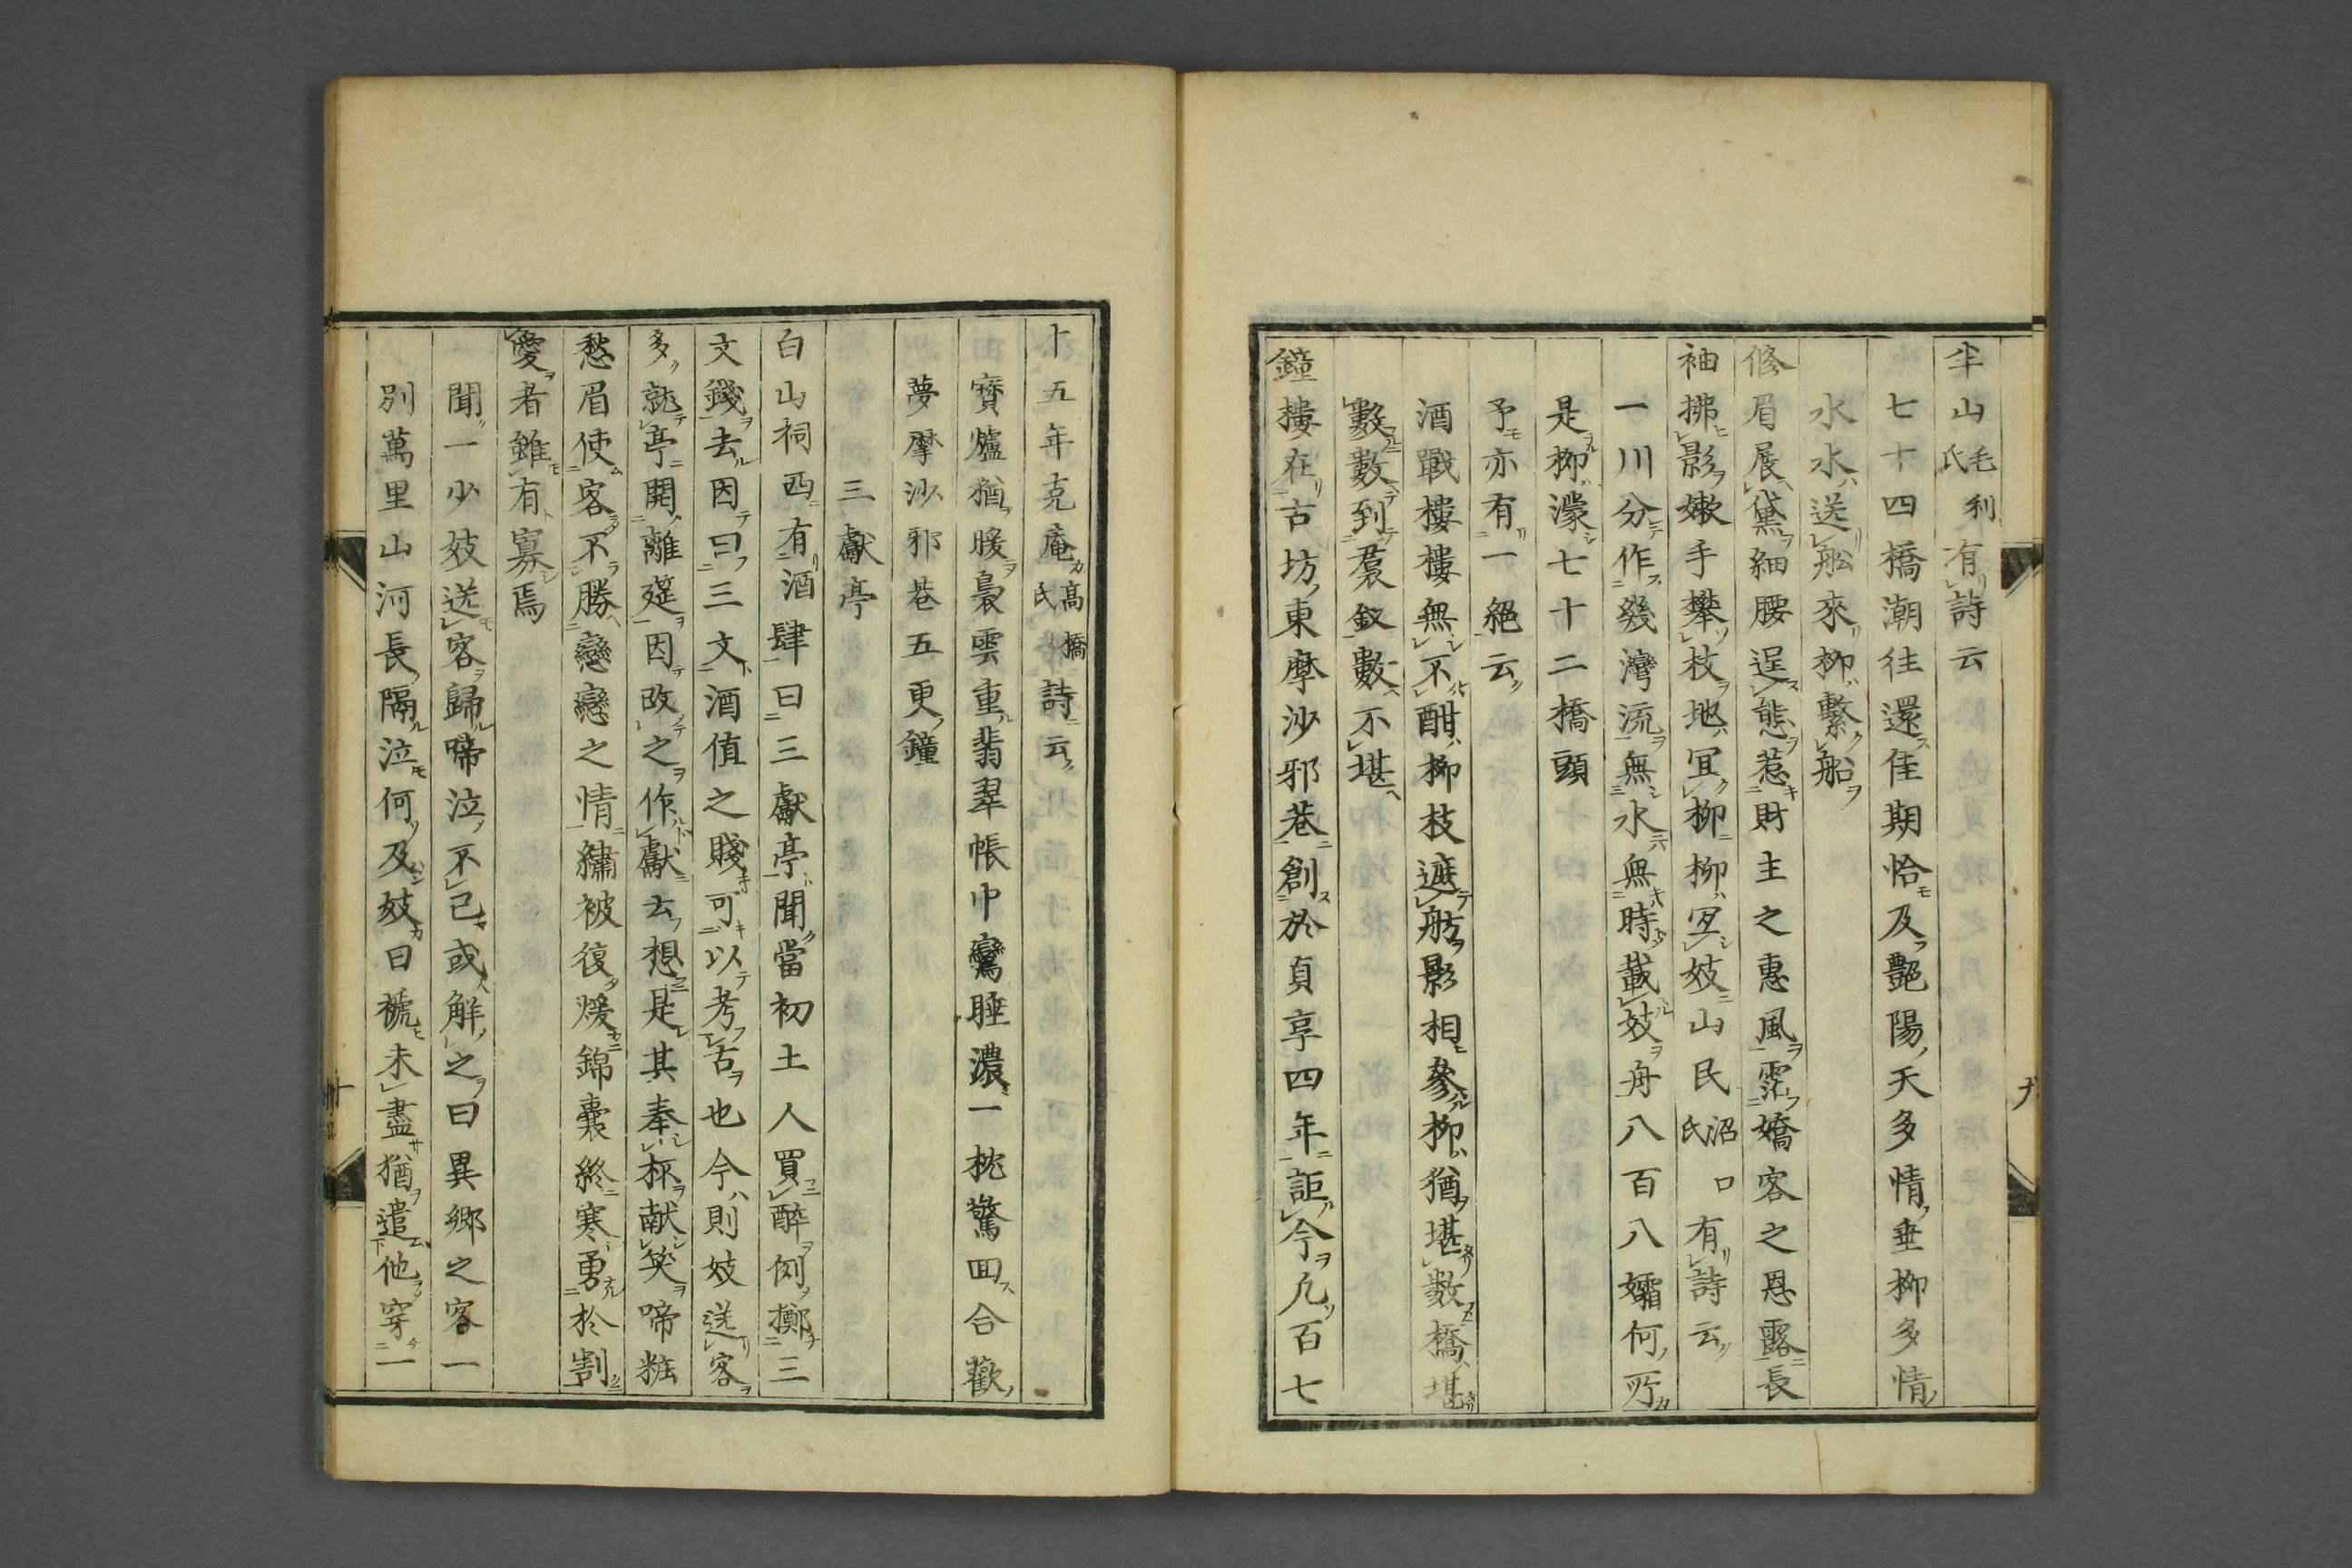 半山毛利氏有詩云
七十四橋潮往還佳期恰及艶陽天多情垂柳多情
水水送船來柳繫船
修眉展黛細腰逞態惹財主之惠風霑嬌客之恩露長
袖拂影嫩手攀枝地宜柳柳宜妓山民沼口氏有詩云
一川分作幾灣流無水無時載妓舟八百八孀何所
是柳濛七十二橋頭
予亦有一絕云
酒戰樓樓無不酣柳枝遮舫影相參柳猶堪數橋堪
數數到裙釵數不堪
鐘樓在古坊東摩沙邪巷創於貞享四年詎今凢百七
十五年克庵高橋氏詩云
寶爐猶暖裊雲重翡翠帳巾鸞睡濃一枕驚回合歡
夢摩沙邪巷五更鐘
三獻亭
白山祠西有酒肆曰三獻亭聞當初土人買醉例擲三
文錢去因曰三文酒值之賤可以考古也今則妓送客
多就亭開離筵因改之作獻云想是其奉杯献笑啼粧
愁眉使客不勝戀戀之情繡被復煖錦囊終寒勇於割
愛者雖有寡焉
聞一少妓送客歸啼泣不已或解之曰異鄉之客一
別萬里山河長隔泣何及妓曰褫未盡猶遣他穿一